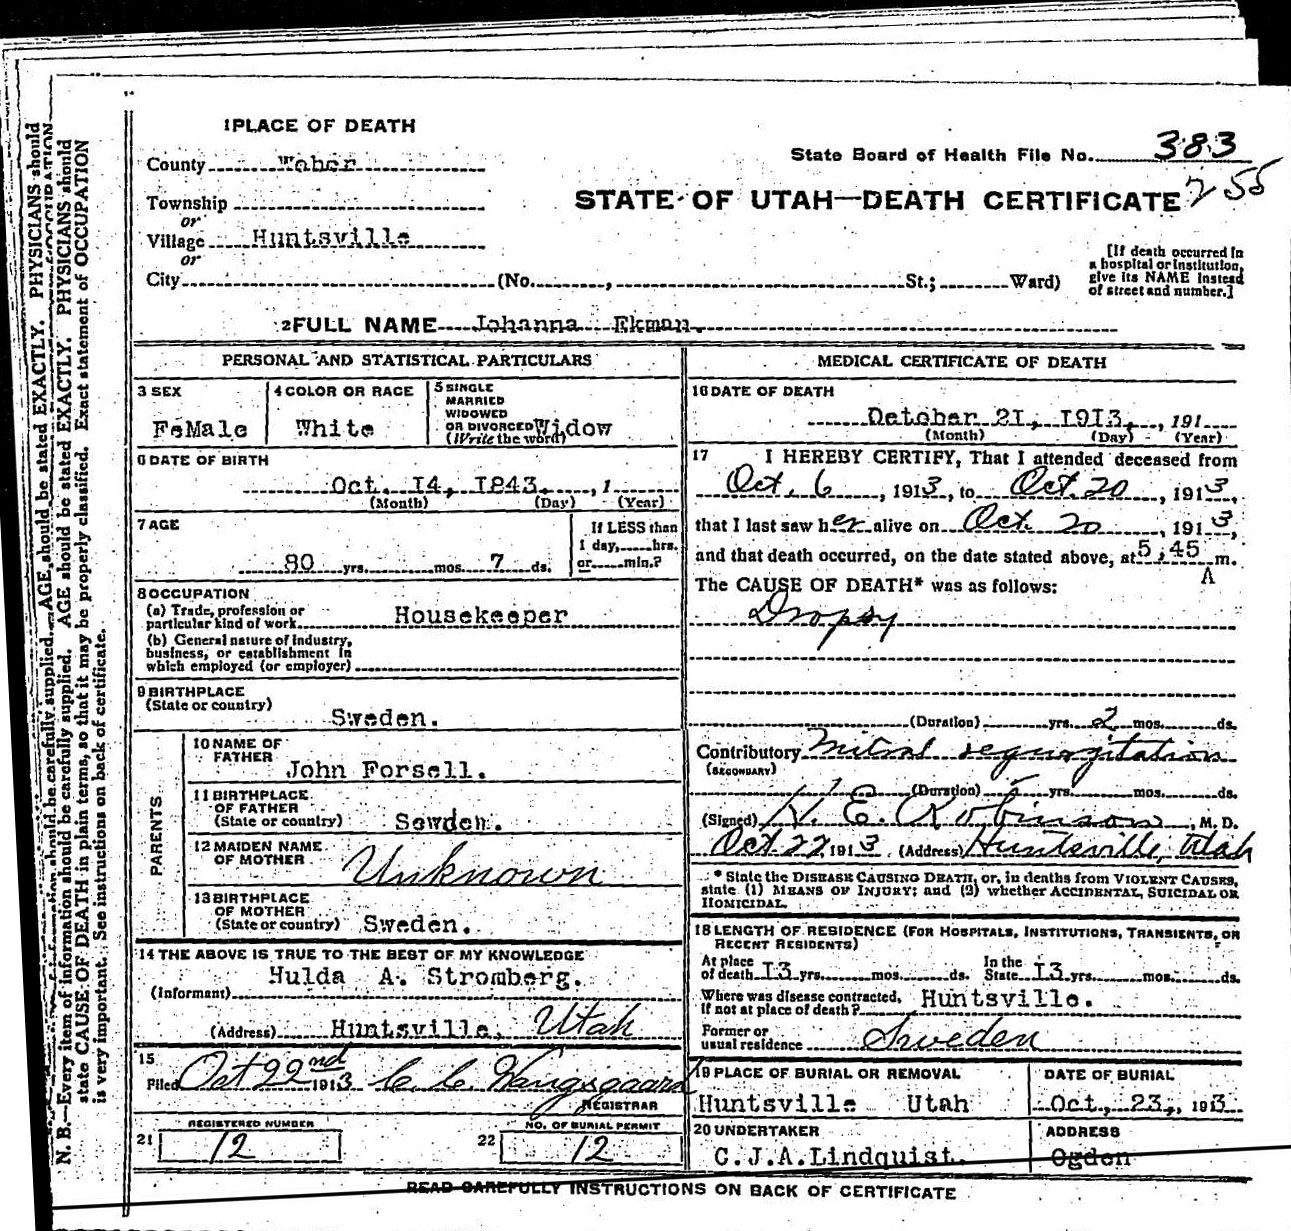 1 PLACE OF DEATH
County Weber
State Board of Health File No. 383
Township
STATE OF UTAH—DEATH CERTIFICATE 255
or
Village Huntsville
or
City (No. , St.; Ward)
[If death occurred in
a hospital or institution,
give its NAME instead
of street and number.]
2 FULL NAME Johanna Ekman.
PERSONAL AND STATISTICAL PARTICULARS
3 SEX
FeMale
4 COLOR OR RACE
White
5 SINGLE
MARRIED
WIDOWED
OR DIVORCED Widow
(Write the word)
6 DATE OF BIRTH
Oct. 14, 1843. , 1
(Month) (Day) (Year)
7 AGE
80 yrs. mos. 7 ds.
If LESS than
1 day, hrs.
or min.?
8 OCCUPATION
(a) Trade, profession or
particular kind of work Housekeeper
(b) General nature of industry,
business, or establishment in
which employed (or employer)
9 BIRTHPLACE
(State or country)
Sweden.
PARENTS
10 NAME OF
FATHER
John Forsell.
11 BIRTHPLACE
OF FATHER
(State or country) Sewden.
12 MAIDEN NAME
OF MOTHER Unknown
13 BIRTHPLACE
OF MOTHER
(State or country) Sweden.
14 THE ABOVE IS TRUE TO THE BEST OF MY KNOWLEDGE
(Informant) Hulda A. Stromberg.
(Address) Huntsville, Utah
15
Filed Oct 22nd 1913 C. C. Wangsgaard
REGISTRAR
REGISTERED NUMBER
21 12
NO. OF BURIAL PERMIT
22 12
MEDICAL CERTIFICATE OF DEATH
16 DATE OF DEATH
October 21, 1913. , 191
(Month) (Day) (Year)
17 I HEREBY CERTIFY, That I attended deceased from
Oct. 6 , 1913, to Oct. 20 , 1913,
that I last saw her alive on Oct. 20 , 1913,
and that death occurred, on the date stated above, at 5:45 A m.
The CAUSE OF DEATH* was as follows:
Dropsy
(Duration) yrs. 2 mos. ds.
Contributory Mitral regurgitation
(SECONDARY)
(Duration) yrs. mos. ds.
(Signed) H. E. Robinson, M. D.
Oct 22, 1913 (Address) Huntsville, Utah
* State the DISEASE CAUSING DEATH, or, in deaths from VIOLENT CAUSES,
state (1) MEANS OF INJURY; and (2) whether ACCIDENTAL, SUICIDAL OR
HOMICIDAL.
18 LENGTH OF RESIDENCE (FOR HOSPITALS, INSTITUTIONS, TRANSIENTS, OR
RECENT RESIDENTS)
At place In the
of death 13 yrs. mos. ds. State 13 yrs. mos. ds.
Where was disease contracted,
if not at place of death? Huntsville.
Former or
usual residence Sweden
19 PLACE OF BURIAL OR REMOVAL
Huntsville Utah
DATE OF BURIAL
Oct. 23, 1913
20 UNDERTAKER
C.J.A.Lindquist.
ADDRESS
Ogden
READ CAREFULLY INSTRUCTIONS ON BACK OF CERTIFICATE
N. B.—Every item of information should be carefully supplied. AGE should be stated EXACTLY. PHYSICIANS should
state CAUSE OF DEATH in plain terms, so that it may be properly classified. Exact statement of OCCUPATION
is very important. See instructions on back of certificate.